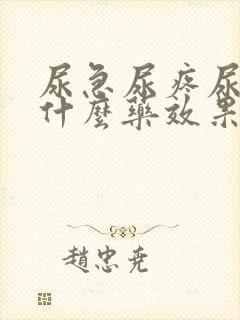 尿急尿疼尿
什麼藥效果
趙忠堯